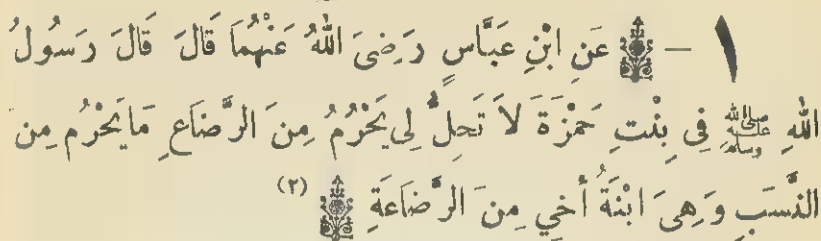 ١ - عَنِ ابْنِ عَبَّاسٍ رَضِىَ اللهُ عَنْهُمَا قَالَ قَالَ رَسُولُ
اللهِ ﷺ فِى بِنْتِ حَمْزَةَ لاَ تَحِلُّ لِى يَحْرُمُ مِنَ الرَّضَاعِ مَا يَحْرُم مِنَ
النَّسَبِ وَهِىَ ابْنَةُ أَخِي مِنَ الرَّضَاعَةِ (٢)